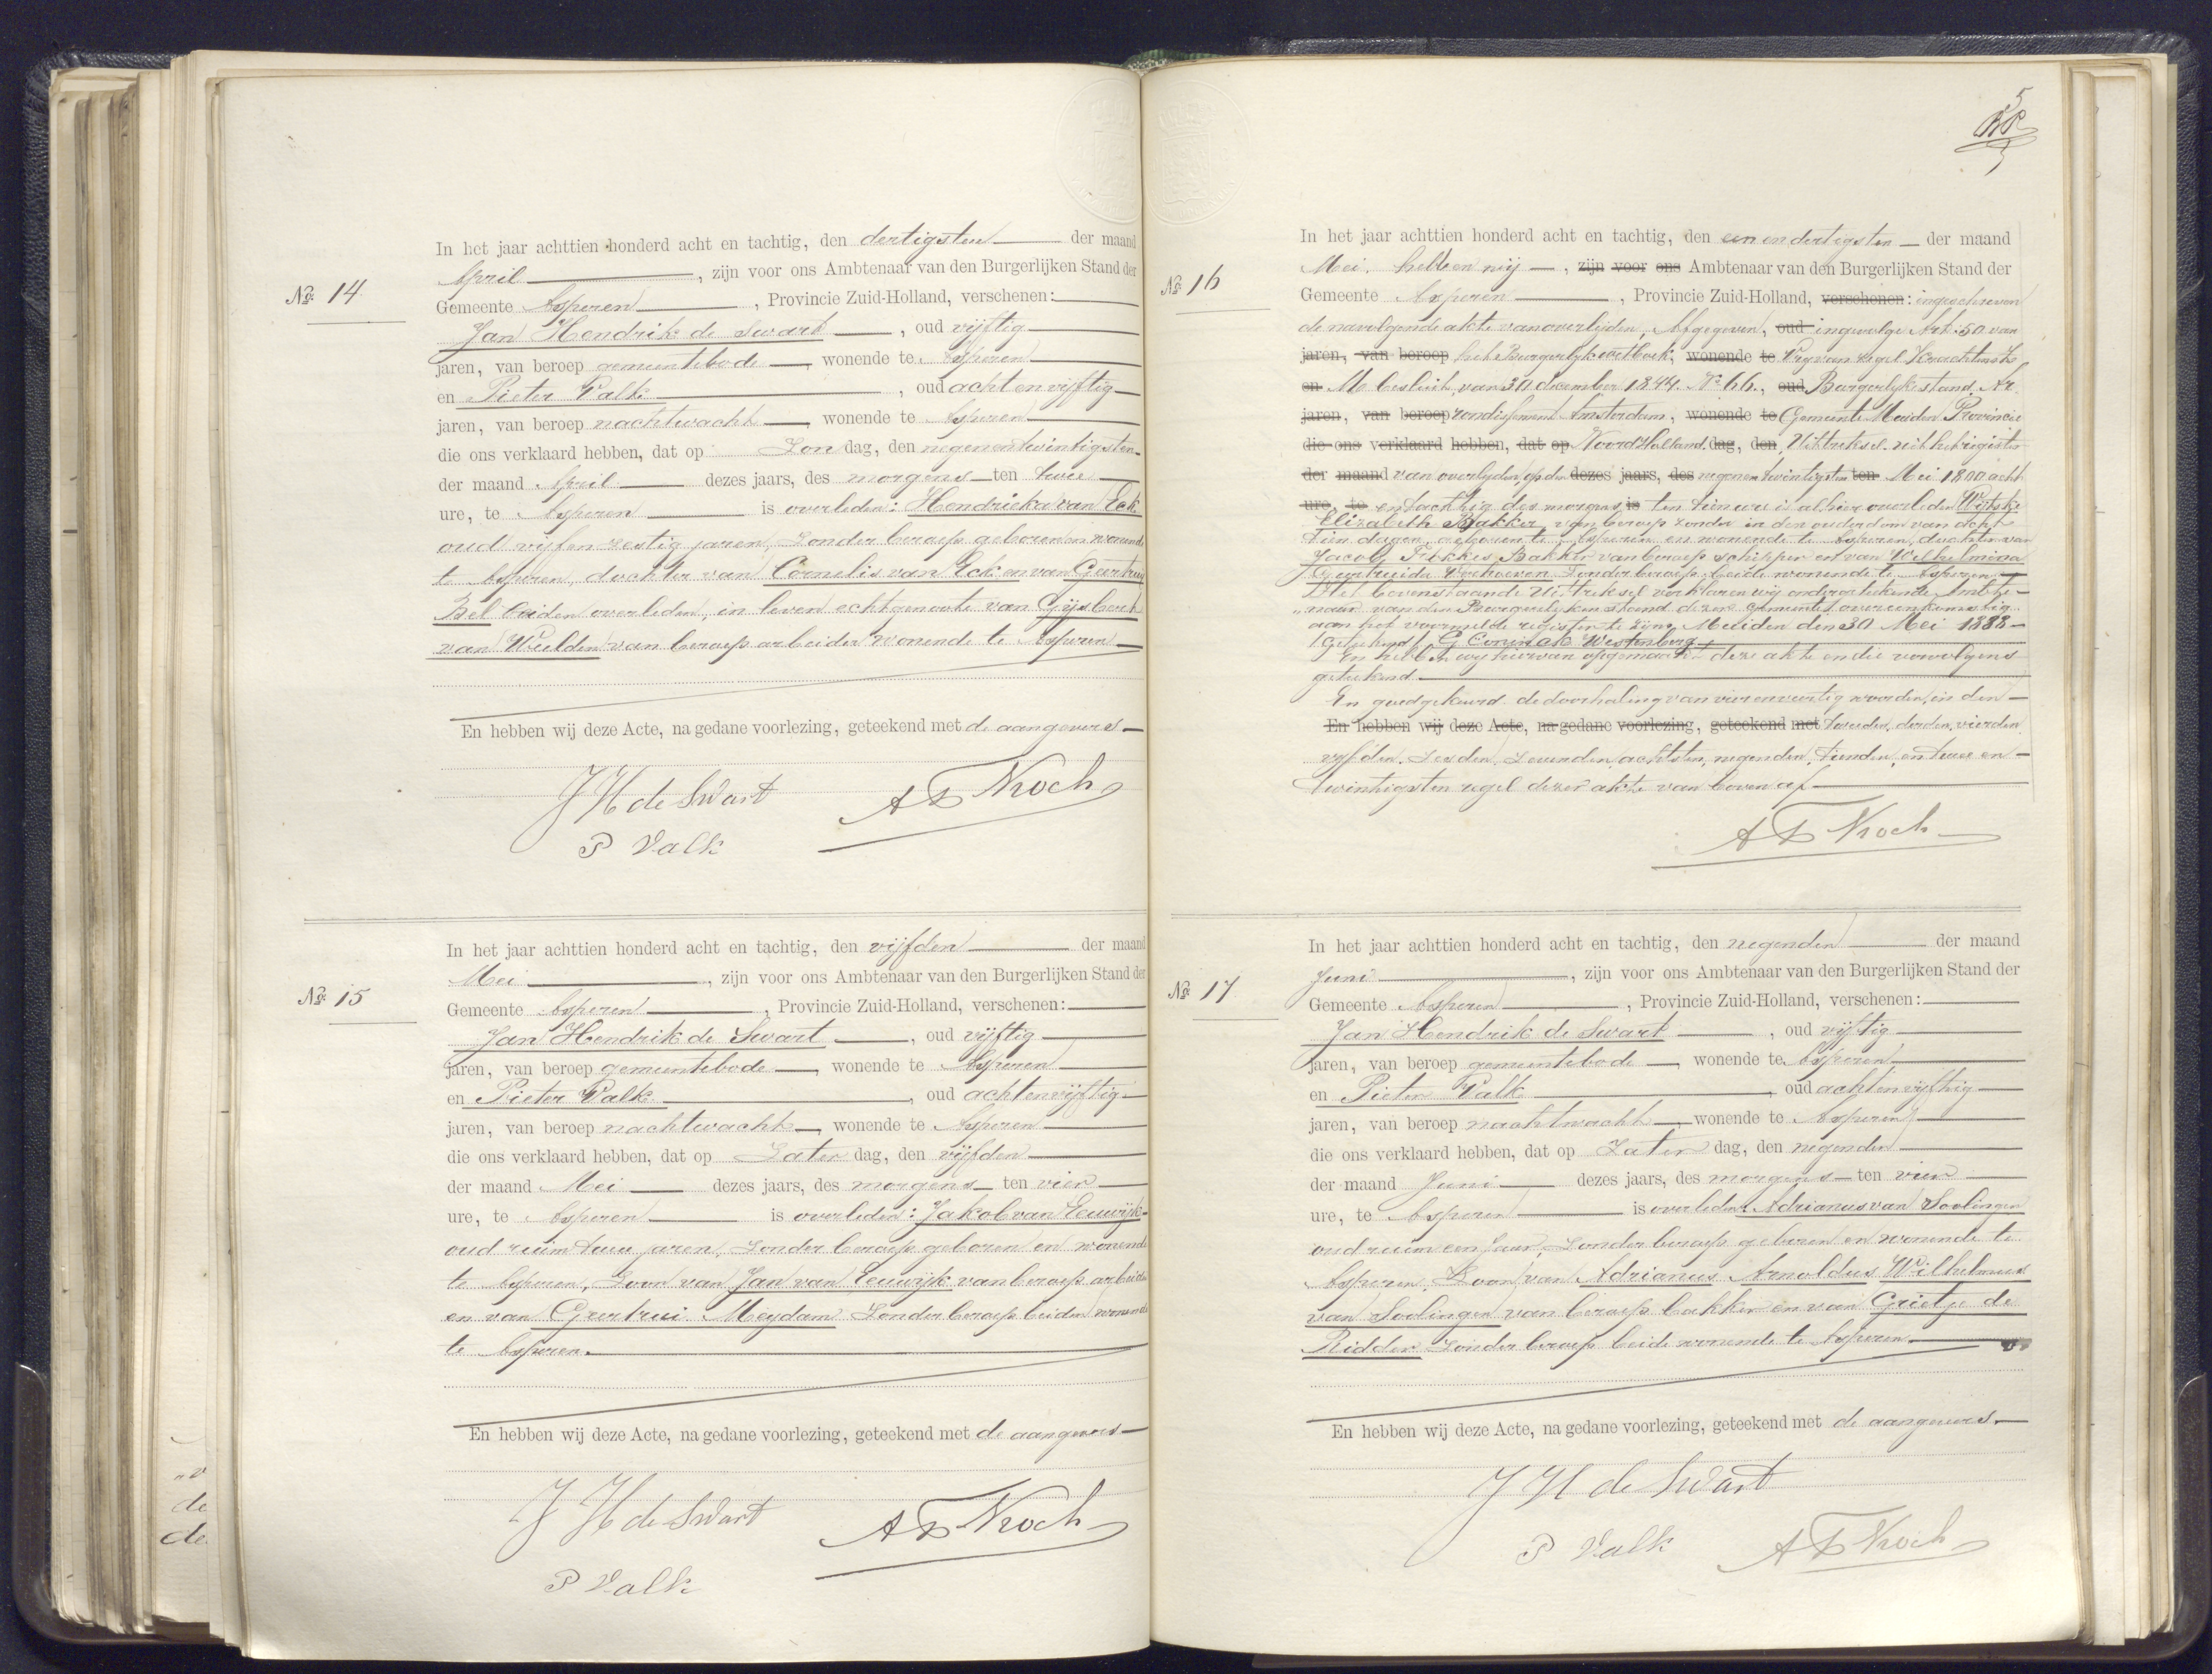 No. 14
In het jaar achttien honderd acht en tachtig, den dertigsten der maand
April, zijn voor ons Ambtenaar van den Burgerlijken Stand der
Gemeente Asperen, Provincie Zuid-Holland, verschenen:
Jan Hendrik de Swart, oud vijftig
jaren, van beroep gemeentebode, wonende te Asperen
en Pieter Valk, oud acht en vijftig
jaren, van beroep nachtwacht, wonende te Asperen
die ons verklaard hebben, dat op Zon dag, den negenentwintigsten
der maand April dezes jaars, des morgens ten twee
ure, te Asperen is overleden: Hendrieka van Eck
oud vijfenzestig jaren, zonder beroep geboren en wonende
te Asperen, dochter van Cornelis van Eck en van Geertrui
Bel beiden overleden, in leven echtgenoote van Gijsbert
van Weelden van beroep arbeider wonende te Asperen
En hebben wij deze Acte, na gedane voorlezing, geteekend met de aangevers
J H de Swart
P Valk
No. 15
In het jaar achttien honderd acht en tachtig, den vijfden der maand
Mei, zijn voor ons Ambtenaar van den Burgerlijken Stand der
Gemeente Asperen, Provincie Zuid-Holland, verschenen:
Jan Hendrik de Swart, oud vijftig
jaren, van beroep gemeentebode, wonende te Asperen
en Pieter Valk, oud achtenvijftig
jaren, van beroep nachtwacht, wonende te Asperen
die ons verklaard hebben, dat op Zater dag, den vijfden
der maand Mei dezes jaars, des morgens ten vier
ure, te Asperen is overleden: Jakob van Eeuwijk
oud ruim twee jaren, zonder beroep geboren en wonende
te Asperen, Zoon van Jan van Eeuwijk van beroep arbeider
en van Geertrui Meydam zonder beroep beiden wonende
te Asperen.
En hebben wij deze Acte, na gedane voorlezing, geteekend met de aangevers
J H de Swart
P Valk
5
No. 16
In het jaar achttien honderd acht en tachtig, den een en dertigsten der maand
Mei. hebben wij, zijn voor ons Ambtenaar van den Burgerlijken Stand der
Gemeente Asperen, Provincie Zuid-Holland, verschenen: ingeschreven
de navolgende akte van overlijden, Afgegeven, oud ingevolge Art: 50 van
jaren, van beroep het Burgerlyk wetboek, wonende te Vry van zegel Krachtens
en besluit van 30 december 1844. No. 66., oud Burgerlyke stand. Ar
jaren, van beroep rondissement Amsterdam, wonende te Gemeente Muiden Provincie
die ons verklaard hebben, dat op Noord Holland. dag, den, Uittreksel uit het register
der maand van overlyden, op den dezes jaars, des negenentwintigsten ten Mei 1800 acht
ure, te en tachtig des morgens is ten tien ure is alhier overleden Wytske
Elizabeth Bakker van beroep zonder in den ouderdom van acht
tien dagen, geboren te Asperen en wonende te Asperen, dochter van
Jacob Fokkes Bakker van beroep schipper en van Wilhelmina
Geertruida Verhoeven zonder beroep beide wonende te Asperen
Dat bovenstaande Uittreksel verklaren wij ondergeteekende Ambte-
„naar van den Burgerlyken stand dezer gemeente overeenkomstig
aan het voormelde register te zijn. Muiden den 30 Mei 1888
(Geteekend) G Coninck Westenberg.
En hebben wij hiervan opgemaakt deze akte en die vervolgens
geteekend.
En goedgekeurd de doorhaling van vierenveertig woorden, in den
En hebben wij deze Acte, na gedane voorlezing, geteekend met tweeden, derden, vierden
vyfden, zesden, zevenden, achtsten, negenden, tienden, en twee en
twintigsten regel dezer akte van boven af
No. 17
In het jaar achttien honderd acht en tachtig, den negenden der maand
Juni, zijn voor ons Ambtenaar van den Burgerlijken Stand der
Gemeente Asperen, Provincie Zuid-Holland, verschenen:
Jan Hendrik de Swart, oud vijftig
jaren, van beroep gemeentebode, wonende te Asperen
en Pieter Valk, oud achtenvijftig
jaren, van beroep nachtwacht, wonende te Asperen
die ons verklaard hebben, dat op Zater dag, den negenden
der maand Juni dezes jaars, des morgens ten vier
ure, te Asperen is overleden: Adrianus van Soolingen
oud ruim een jaar, zonder beroep geboren en wonende te
Asperen Zoon van Adrianus Arnoldus Wilhelmus
van Soolingen van beroep bakker en van Grietje de
Ridder zonder beroep beide wonende te Asperen
En hebben wij deze Acte, na gedane voorlezing, geteekend met de aangevers.
J H de Swart
P Valk